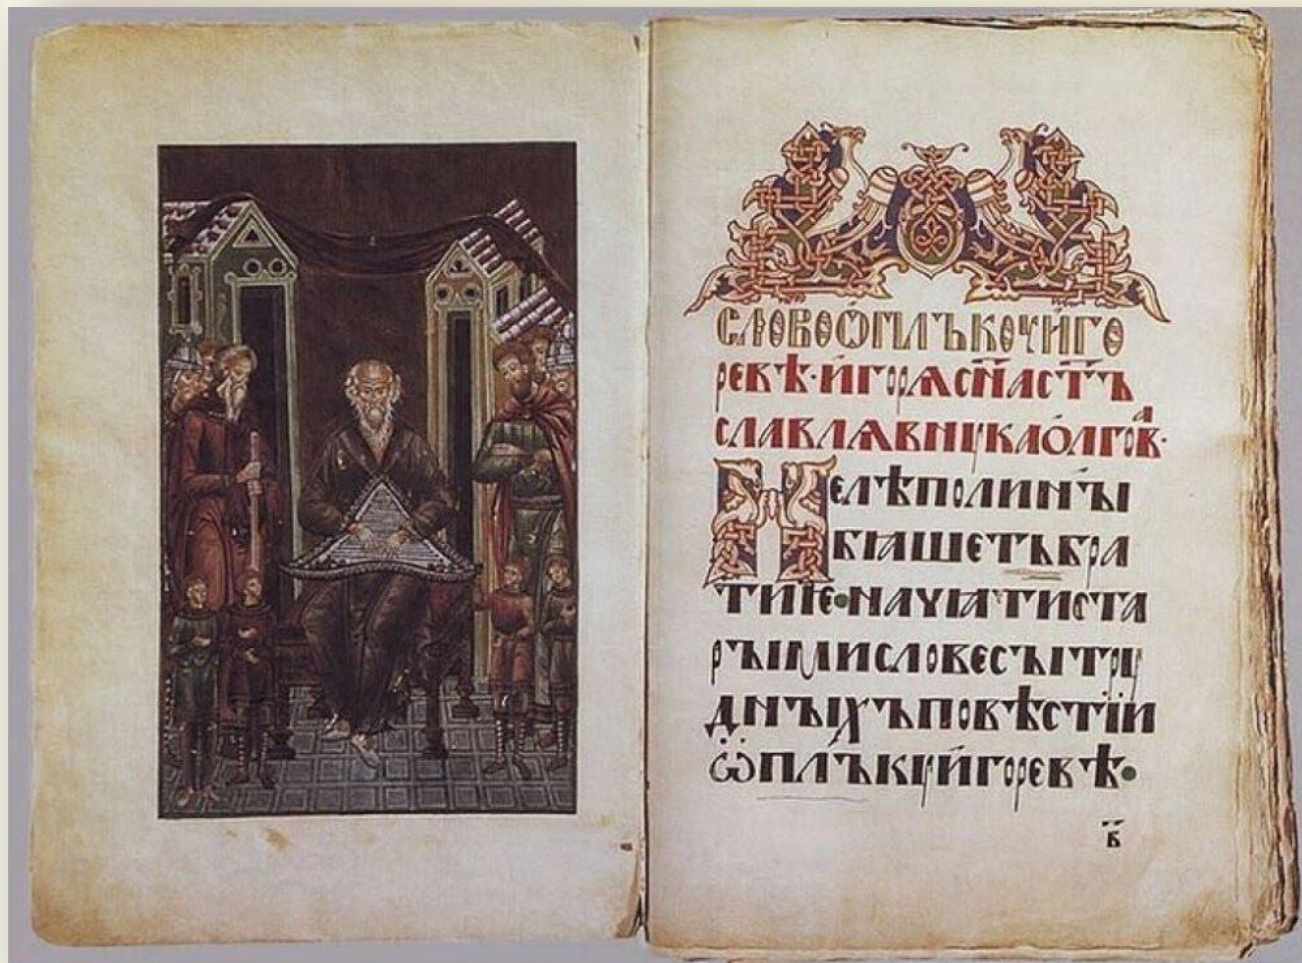 СЛОВОѾПЛЪКОУИГО
РЕВѢ·ИГОРѦСН҃АСТ҃Ъ
СЛАВЛѦВНꙋКАОЛГОВⷶ·
НЕЛѢПОЛИНЪІ
БꙖШЕТЬБРА
ТИѤ·НАЧꙖТИСТА
РЪІМИСЛОВЕСЪІТРꙋ
ДНЪІХЪПОВѢСТІИ
ѾПЛЪКꙋИГОРЕВѢ·
в҃